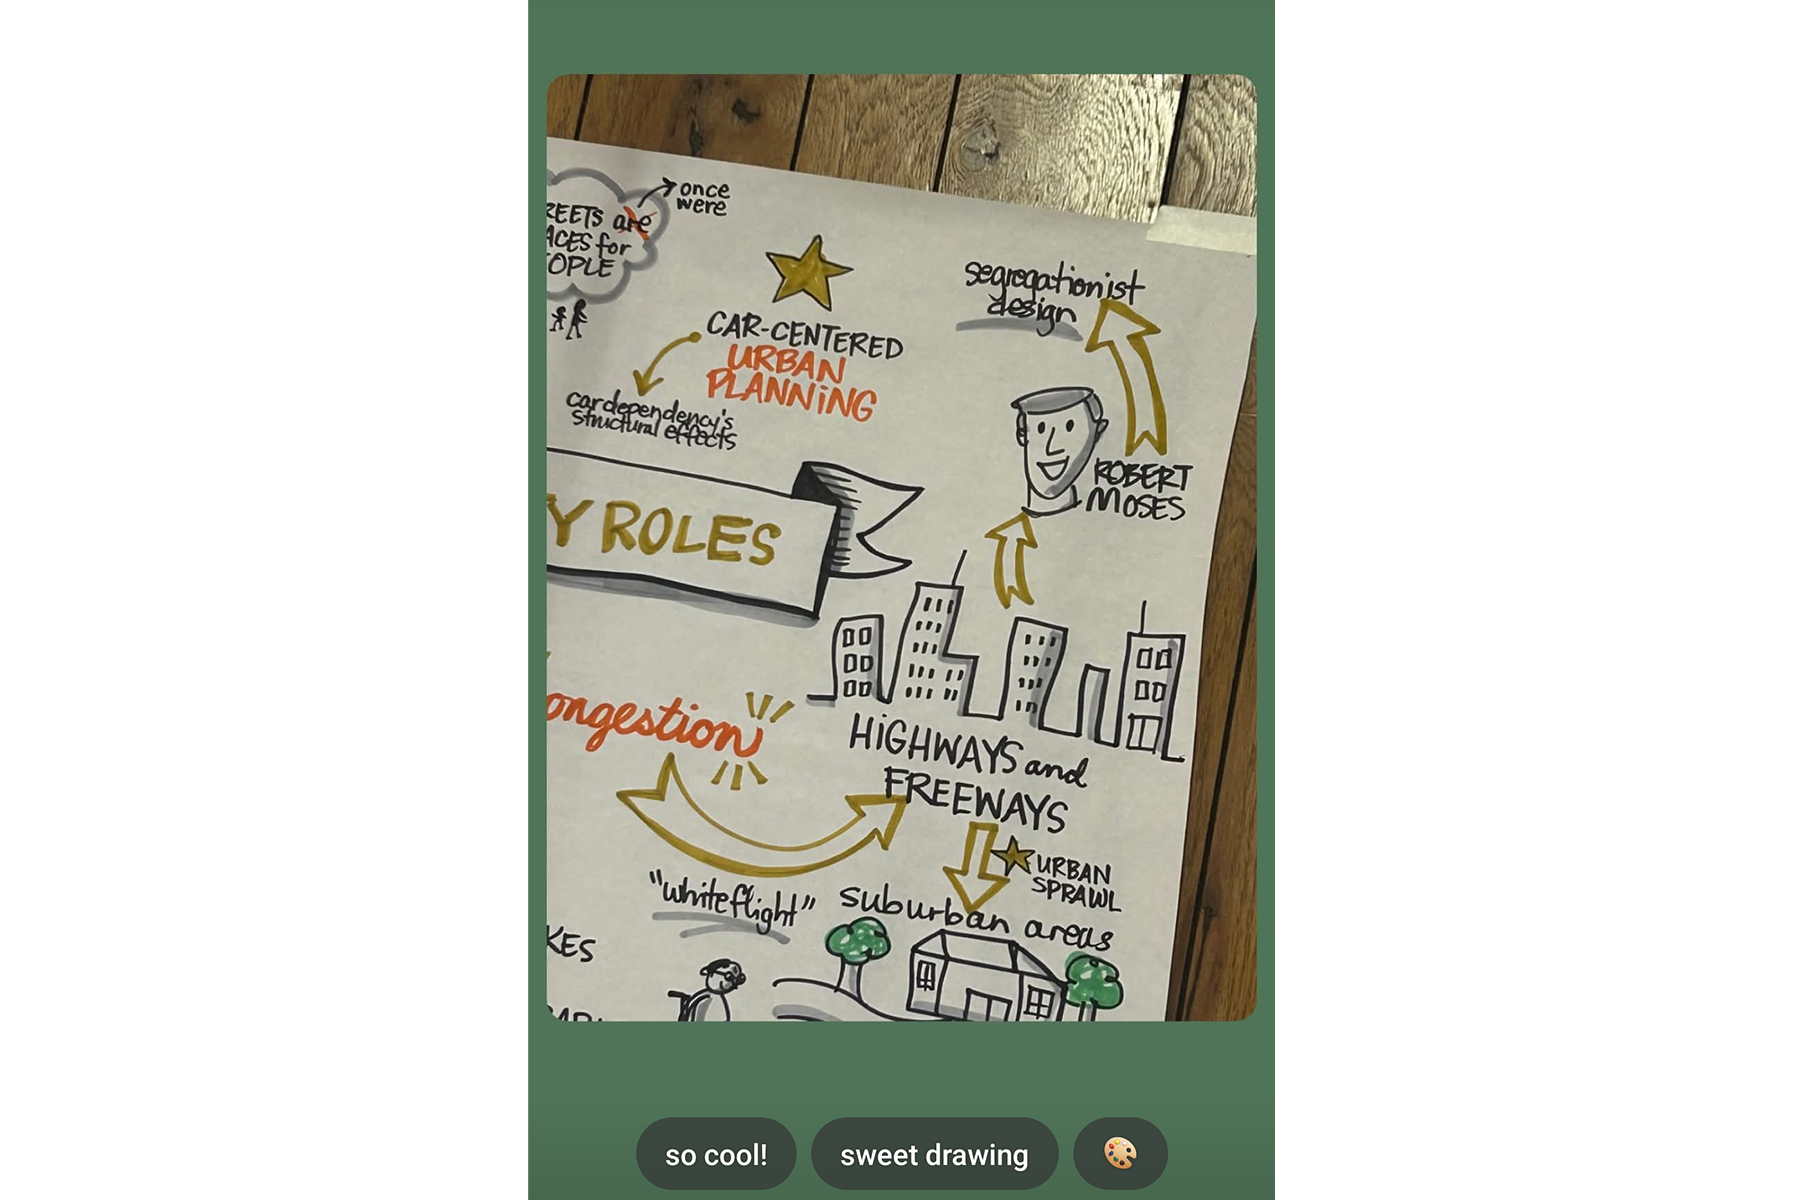 once
were
REETS are
ACES for
OPLE
CAR-CENTERED
URBAN
PLANNiNG
car dependency's
structural effects
segregationist
design
ROBERT
MOSES
Y ROLES
ongestion
HiGHWAYS and
FREEWAYS
URBAN
SPRAWL
"white flight"
suburban areas
KES
so cool!
sweet drawing